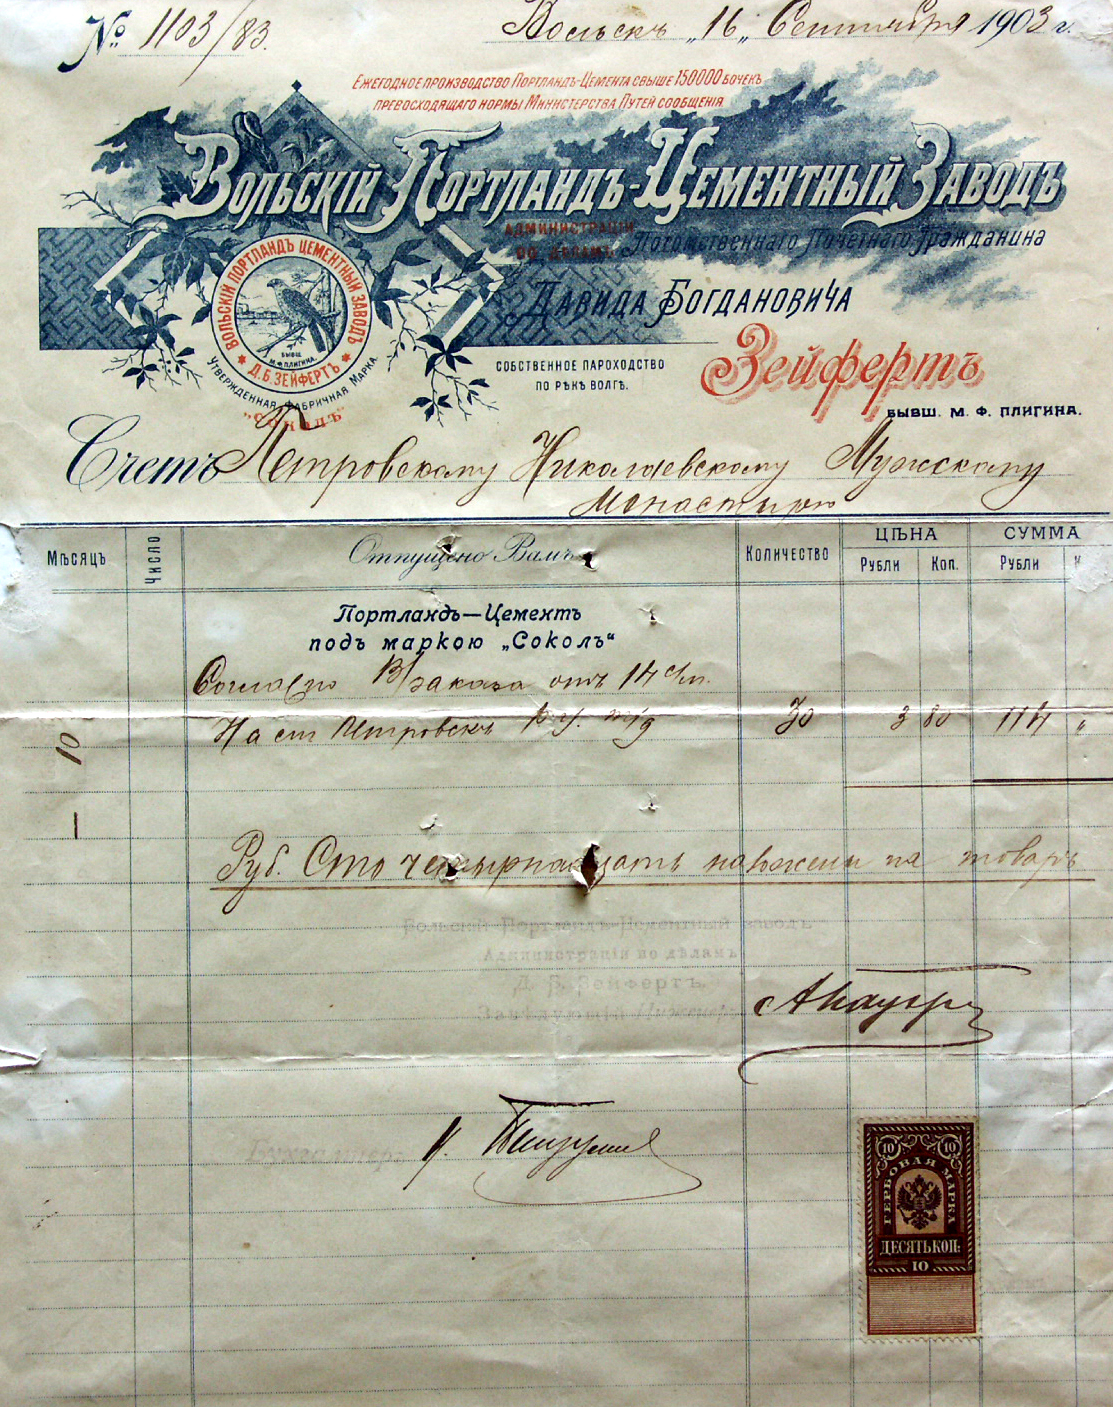 № 1103/83.
Вольскъ „16„ Сентября 1903 г.
Ежегодное производство Портландъ-Цемента свыше 150000 бочекъ
превосходящаго нормы Министерства Путей сообщенія
Вольскій Портландъ-Цементный Заводъ
Администрація
по дѣламъ
Потомственнаго Почетнаго Гражданина
Давида Богдановича
Зейфертъ
бывш. М. Ф. Плигина.
Собственное пароходство
по рѣкѣ Волгѣ.
Вольскій Портландъ Цементный Заводъ
Д. Б. Зейфертъ
бывш
М. Ф. Плигина.
Утвержденная Фабричная Марка
„Соколъ"
Счетъ Петровскому Николаевскому Мужскому
Монастырю
Мѣсяцъ
Число
Отпущено Вамъ
Количество
Цѣна
Рубли
Коп.
Сумма
Рубли
К
Портландъ—Цементъ
подъ маркою „Соколъ"
Согласно В/заказа отъ 14 с/м.
На ст Петровскъ 30 3 80 114 "
10
Руб. Сто четырнадцать на товаръ
Вольскій Портландъ-Цементный Заводъ
Администрація по дѣламъ
Д. Б. Зейфертъ.
Завѣдующій Инженеръ
Бухгалтеръ
10 10
Гербовая марка
Десять коп:
10